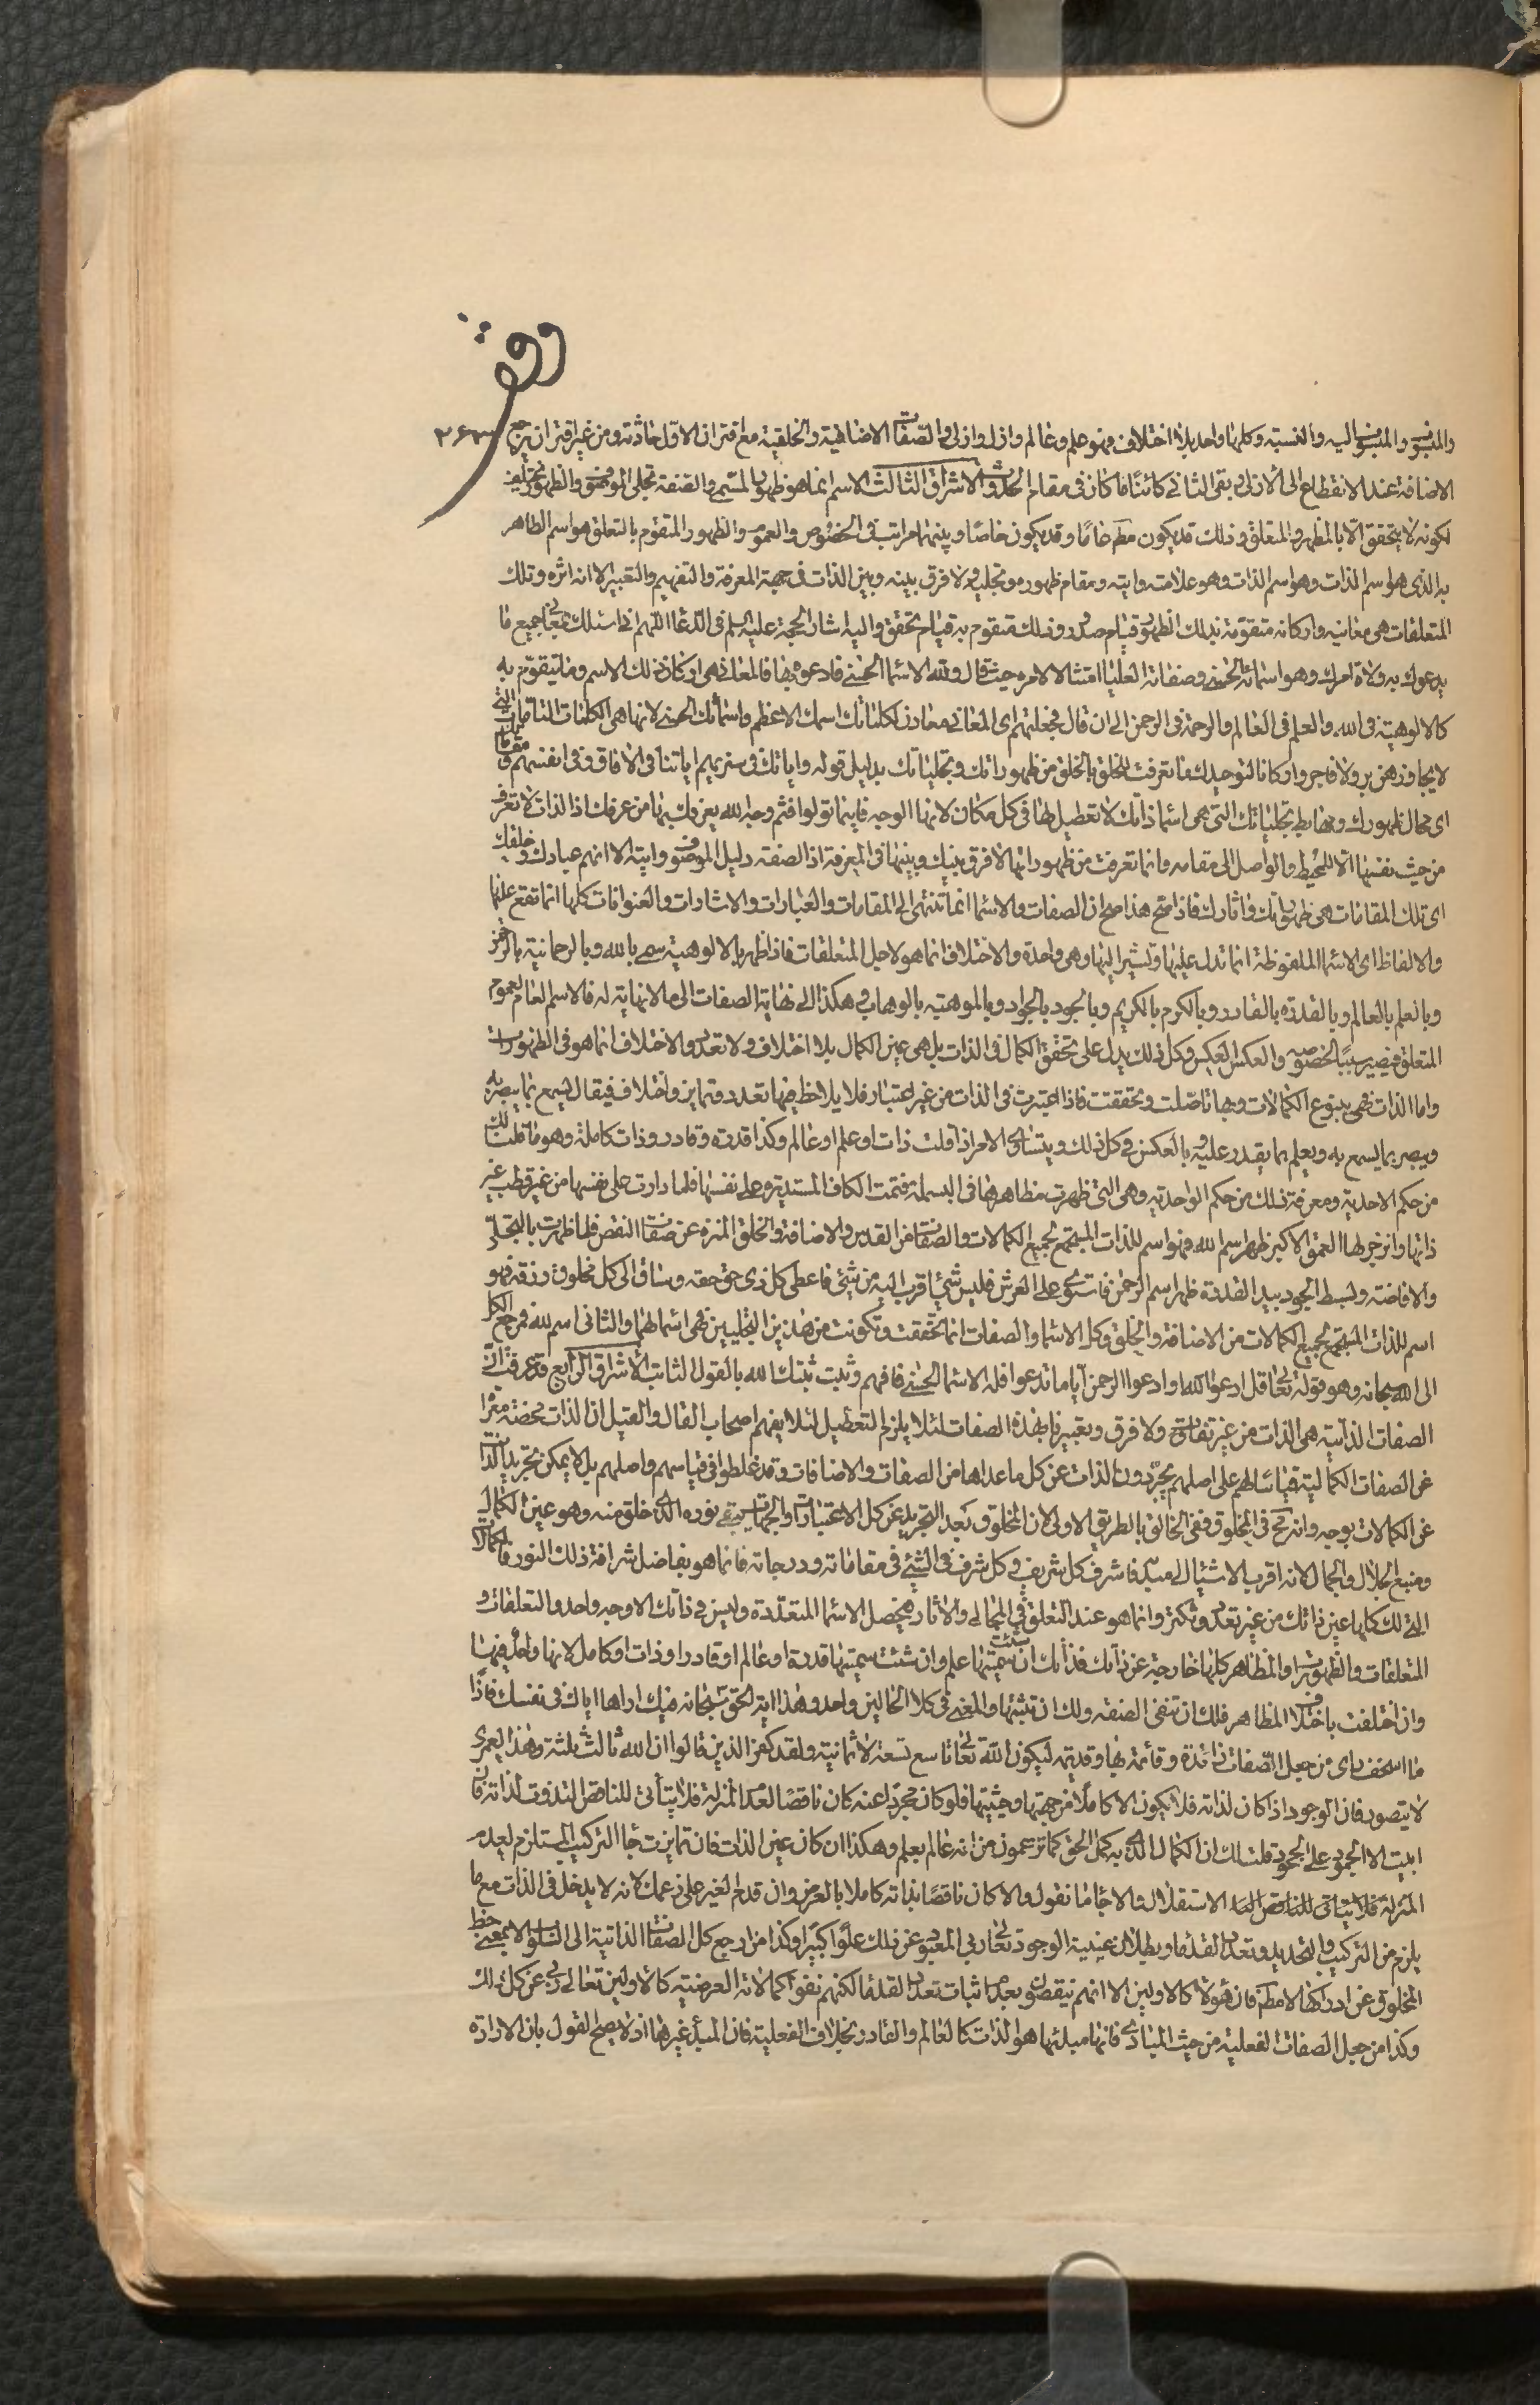 وقف
٢٤٣
والمنسوب والمنسوب اليه والنسبة وكلها واحد بلا اختلاف فهو علم وعالم وازل وازلي والصفات الاضافية والخلقية مع اقتران الاول حادثة ومن غير اقتران يرجع
الاضافة عند الانقطاع الى الأزل ويبقى الثاني كائنًا ما كان في مقام الحدوث الاشراق الثالث الاسم انما هو ظهور المسمى والصفة تجلى الموصوف والظهور
لكونه لا يتحقق الا بالمظهر والمتعلق وذلك قد يكون عامًا وقد يكون خاصًا وبينهما مراتب في الخصوص والعموم والظهور المتقوم بالتعلق هو اسم الظاهر
به الذي هو اسم الذات وهو اسم الذات وهو علامته وايته ومقام ظهوره وتجليه ولا فرق بينه وبين الذات في جهة المعرفة والتفهيم والتعبير الا انه اثره وتلك
المتعلقات هي معانيه واركانه متقومة بذلك الظهور قيام صدور وذلك متقوم به قيام تحقق واليه اشار الحجة عليه السلم في الدعا اللهم اني اسئلك بمعاني جميع ما
يدعوك به ولاة امرك وهو اسمائه الحسنى وصفاته العليا امتثالا لامره حيث قال ولله الاسما الحسنى فادعوه بها فالمعاني هي اركان ذلك الاسم وما يتقوم به
كالالوهية في الله والعلم في العالم والرحمة في الرحمن الى ان قال فجعلتهم اي المعاني معادن لكلماتك اسمك الاعظم واسمائك الحسنى لانها هي الكلمات التامات التي
لا يجاوزهن بر ولا فاجر واركانا لتوحيدك فما تعرفت للخلق بالخلق من ظهوراتك وتجلياتك بدليل قوله واياتك في سنريهم اياتنا في الافاق وفي انفسهم ومقاماتك
اي محال ظهورك ومهابط تجلياتك التي هي اسما ذاتك لا تعطيل لها في كل مكان لانها الوجه فاينما تولوا فثم وجه الله يعرفك بها من عرفك اذ الذات لا تعرف
من حيث نفسها الا للمحيط والواصل الى مقامه وانما تعرفت من ظهوراتها لا فرق بينك وبينها في المعرفة اذ الصفة دليل الموصوف وايته الا انهم عبادك وخلقك
اي تلك المقامات هي ظهوراتك واثارك فاذا صح هذا صح ان الصفات والاسما انما تنتهي الى المقامات والعبارات والاشارات والعنوانات كلها انما تقع عليها
والالفاظ اي الاسما الملفوظة انما تدل عليها وتشير اليها وهي واحدة والاختلاف انما هو لاجل المتعلقات فاذا ظهر بالالوهية سمى بالله وبالرحمانية بالرحمن
وبالعلم بالعالم وبالقدرة بالقادر وبالكرم بالكريم وبالجود بالجواد وبالموهبة بالوهاب وهكذا الى نهاية الصفات الى ما لا نهاية له فالاسم العام لعموم
المتعلق فيصير سببًا لخصوصه والعكس العكس وكل ذلك يدل على تحقق الكمال في الذات بل هي عين الكمال بلا اختلاف ولا تعدد والاختلاف انما هو في الظهورات
واما الذات فهي ينبوع الكمالات وبها تأصلت وتحققت فاذا اعتبرت في الذات من غير اعتبار فلا يلاحظ فيها تعدد وتمايز واختلاف فيقال يسمع بما يبصر به
ويبصر بما يسمع به ويعلم بما يقدر عليه وبالعكس في كل ذلك ويتساوى الامر اذا قلت ذات او علم او عالم وكذا قدرة وقادر وذات كاملة وهو ما قلت لك
من حكم الاحدية ومعرفة ذلك من حكم الواحدية وهي التي ظهرت مظاهرها في البسملة فتمت الكاف المستديرة على نفسها فلما دارت على نفسها من غير قطب غير
ذاتها وانزجر لها العمق الاكبر ظهر اسم الله فهو اسم للذات المستجمع لجميع الكمالات والصفات من القدس والاضافة والخلق المنزه عن صفات النقص فلما ظهرت بالتجلي
والافاضة وبسط الجود بيد القدرة ظهر اسم الرحمن فاستوى على العرش فليس شيء اقرب اليه من شيء فاعطى كل ذي حق حقه وساق الى كل مخلوق رزقه فهو
اسم للذات المستجمع لجميع الكمالات من الاضافة والخلق وكل الاسما والصفات انما تحققت وتكونت من هذين التجليين فهي اسما لهما والثاني اسم لله فمرجع الكل
الى الله سبحانه وهو قوله تعالى قل ادعوا الله او ادعوا الرحمن أياما تدعوا فله الاسما الحسنى فافهم وثبت ثبتك الله بالقول الثابت الاشراق الرابع قد عرفت ان
الصفات الذاتية هي الذات من غير تفاوت ولا فرق وتعبيرنا بهذه الصفات لئلا يلزم التعطيل لئلا يفهم اصحاب القال والقيل ان الذات محضة معراة
عن الصفات الكمالية قياسا لهم على اصلهم يجردون الذات عن كل ما عداها من الصفات والاضافات وقد غلطوا في قياسهم واصلهم بل لا يمكن تجريد الذات
عن الكمالات بوجه وانه صح في المخلوق ففي الخالق بالطريق الاولى لان المخلوق بعد التجريد عن كل الاعتبارات والجهات يبقى نوره الذي خلق منه وهو عين الكمال
ومنبع الجلال والجمال لانه اقرب الاشياء الى مبدئه فاشرف كل شريف وكل شرف في الشيء في مقاماته ودرجاته فانما هو بفاضل شرافة ذلك النور فالكمالات
التي لك كلها عين ذاتك من غير تعدد وتكثر وانما هو عند التعلق في المجالي والاثار فيحصل الاسما المتعددة وليس في ذاتك الا وجه واحد والتعلقات و
المتعلقات والظهورات والمظاهر كلها خارجة عن ذاتك فذاتك ان شئت سميتها علم وان شئت سميتها قدرة او عالم او قادرا وذات او كامل لانها واحد فيها
وان اختلفت باختلاف المظاهر فلك ان تنفى الصفة ولك ان تثبتها والمعنى في كلا الحالين واحد وهذا اية الحق سبحانه فيك اراها اياك في نفسك فاذا
ما اسخف رأي من جعل الصفات زائدة وقائمة بها وقديمة ليكون الله تعالى تاسع تسعة لا ثمانية ولقد كفر الذين قالوا ان الله ثالث ثلثة وهذا لعمري
لا يتصور فان الوجود اذا كان لذاته فلا يكون الا كاملًا من جهتها وحيثيتها فلو كان مجردا عنه كان ناقصًا لعدم المنزلة فلا يتأتى للناقص التذوت لذاته فان
ابيت الا الجمود على الجحود قلت لك ان الكمال الذي به كمل الحق كما تزعمون من انه عالم بعلم وهكذا ان كان عين الذات فان تمايزت جاء التركيب المستلزم لعدم
المنزلة فلا يتاتى للناقص الاستقلال والا جاء ما نقول والا كان ناقصًا بذاته كاملا بالعرض وان قدم الغير على زعمك لانه لا يدخل في الذات مع ما
يلزم من التركيب والتحديد وتعدد القدماء وبطلان عينية الوجود تعالى ربي المعبود عن ذلك علوًا كبيرا وكذا من ارجع كل الصفات الذاتية الى السلوب لا بمعنى حظ
المخلوق عن ادراكها لا مطلقا فان هؤلاء كالاولين الا انهم نقصوا بعدم اثبات تعدد القدما لكنهم نفوا كمالاته العرضية كالاولين تعالى ربي عن كل ذلك
وكذا من جعل الصفات الفعلية من حيث المبادي فانها مبدئها هو الذات كالعالم والقادر بخلاف الفعلية فان المبدء غيرها اذ لا يصح القول بان الارادة